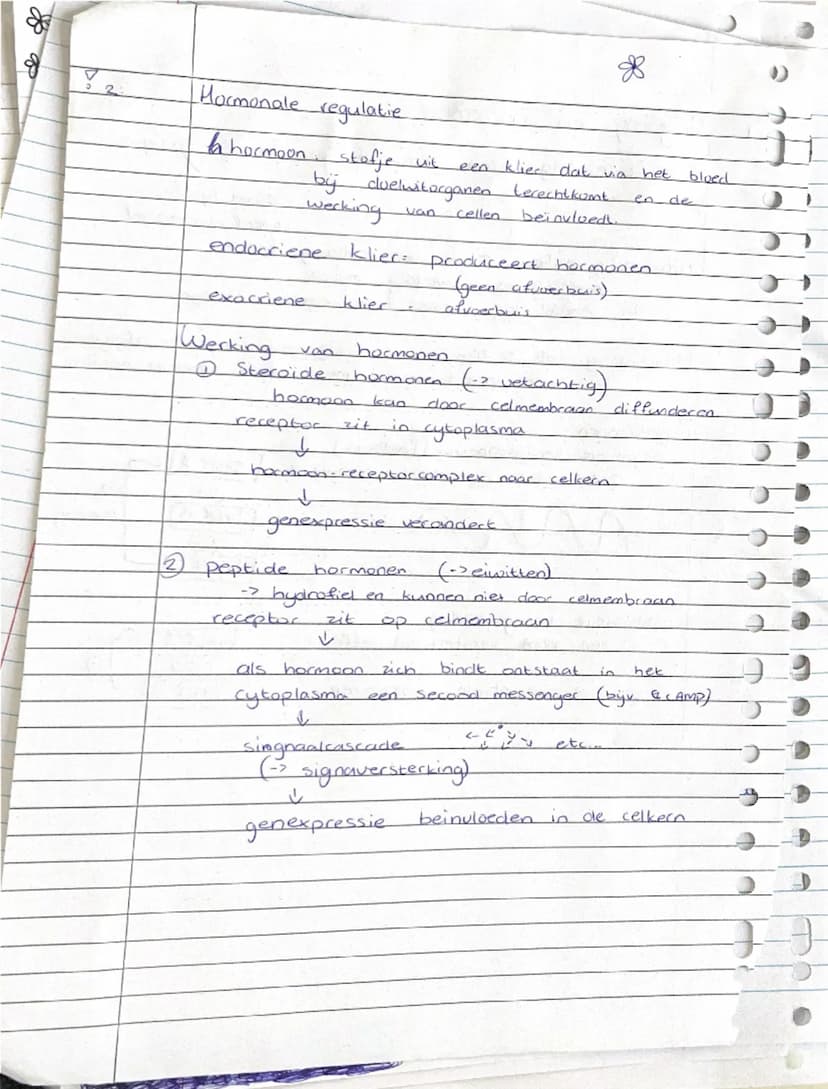 ? 2.
Hormonale regulatie
hormoon: stofje uit een klier dat via het bloed
bij doelwitorganen terechtkomt en de
werking van cellen beinvloedt.
endocriene klier: produceert hormonen
(geen afvoerbuis)
exocriene klier: afvoerbuis
Werking van hormonen
① Steroïde hormonen (-> vetachtig)
hormoon kan door celmembraan diffunderen
receptor zit in cytoplasma
↓
hormoon-receptorcomplex naar celkern
↓
genexpressie verandert
② peptide hormonen (-> eiwitten)
-> hydrofiel en kunnen niet door celmembraan
receptor zit op celmembraan
↓
als hormoon zich bindt ontstaat in het
cytoplasma een second messenger (bijv. cAMP)
↓
singnaalcascade etc...
(-> signaversterking)
↓
genexpressie beinvloeden in de celkern